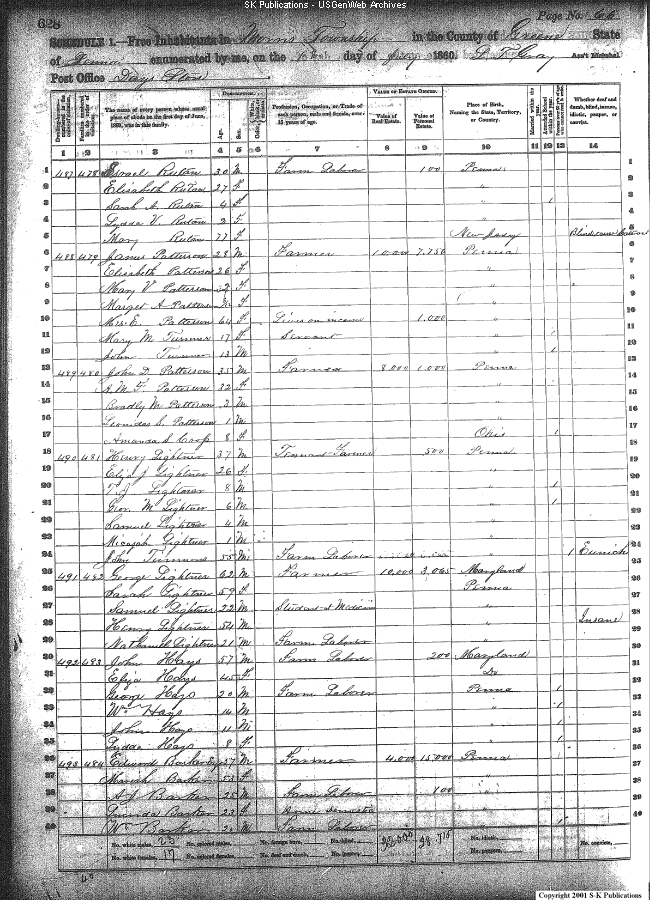 SK Publications - USGenWeb Archives
628
Page No. 66
SCHEDULE 1.—Free Inhabitants in Morris Township in the County of Greene State
of Penna enumerated by me, on the day of July 1860. Ass't Marshal
Post Office Days Store
The name of every person whose usual place of abode on the first day of June, 1860, was in this family.
DESCRIPTION.
Age.
Sex.
Profession, Occupation, or Trade of each person, male and female, over 15 years of age.
VALUE OF ESTATE OWNED.
Value of Real Estate.
Value of Personal Estate.
Place of Birth, Naming the State, Territory, or Country.
Whether deaf and dumb, blind, insane, idiotic, pauper, or convict.
1 2 3 4 5 6 7 8 9 10 11 12 13 14
1 487 478 Israel Rutan 30 M Farm Laborer 100 Penna 1
2 Elisabeth Rutan 27 F "
3 Sarah A. Rutan 4 F "
4 Lydda V. Rutan 2 F "
5 Mary Rutan 77 F New Jersey Blind
6 488 479 James Patterson 28 M Farmer 7,750 Penna
7 Elisabeth Patterson 26 F "
8 Mary V Patterson F "
9 Marget A Patterson F "
10 E. Patterson 64 F Lives on income 1,000 "
11 Mary M. Turner 17 F Servant "
12 John Turner 13 M "
13 489 480 John D. Patterson 35 M Farmer 8,000 1,000 Penna
14 Patterson 32 F "
15 Bradly M. Patterson 3 M "
16 Leonidas S. Patterson 1 M "
17 Amanda S 8 F Ohio
18 490 481 Henry Lightner 37 M Tennant Farmer 500 Penna
19 Eliza J Lightner 26 F "
20 T. J. Lightner 8 M "
21 Geor. M Lightner 6 M "
22 Samuel Lightner 4 M "
23 Micajah Lightner 1 M "
24 John Timmons 55 M Farm Laborer 1 Eunich
25 491 482 George Lightner 62 M Farmer 10,000 3,065 Maryland
26 Sarah Lightner 59 F Penna
27 Samuel Lightner 22 M Student of Medicine "
28 Henry Lightner M " Insane
29 Nathaniel Lightner 21 M Farm Laborer "
30 492 483 John Hays 57 M Farm Laborer 200 Maryland
31 Eliza Hays 45 F Do
32 George Hays 20 M Farm Laborer Penna
33 Wm Hays 14 M "
34 John Hays 11 M "
35 Lydda Hays 8 F "
36 493 484 Edward Barker 57 M Farmer 4,000 15,000 Penna
37 Mariah Barker 53 F "
38 Barker 25 M Farm Laborer 100 "
39 Barker 23 F "
40 Wm Barker M Farm Laborer "
No. white males, 23 No. colored males, No. foreign born, No. blind, No. idiotic, No. convicts,
No. white females, 17 No. colored females, No. deaf and dumb, No. insane, No. paupers,
Copyright 2001 S-K Publications